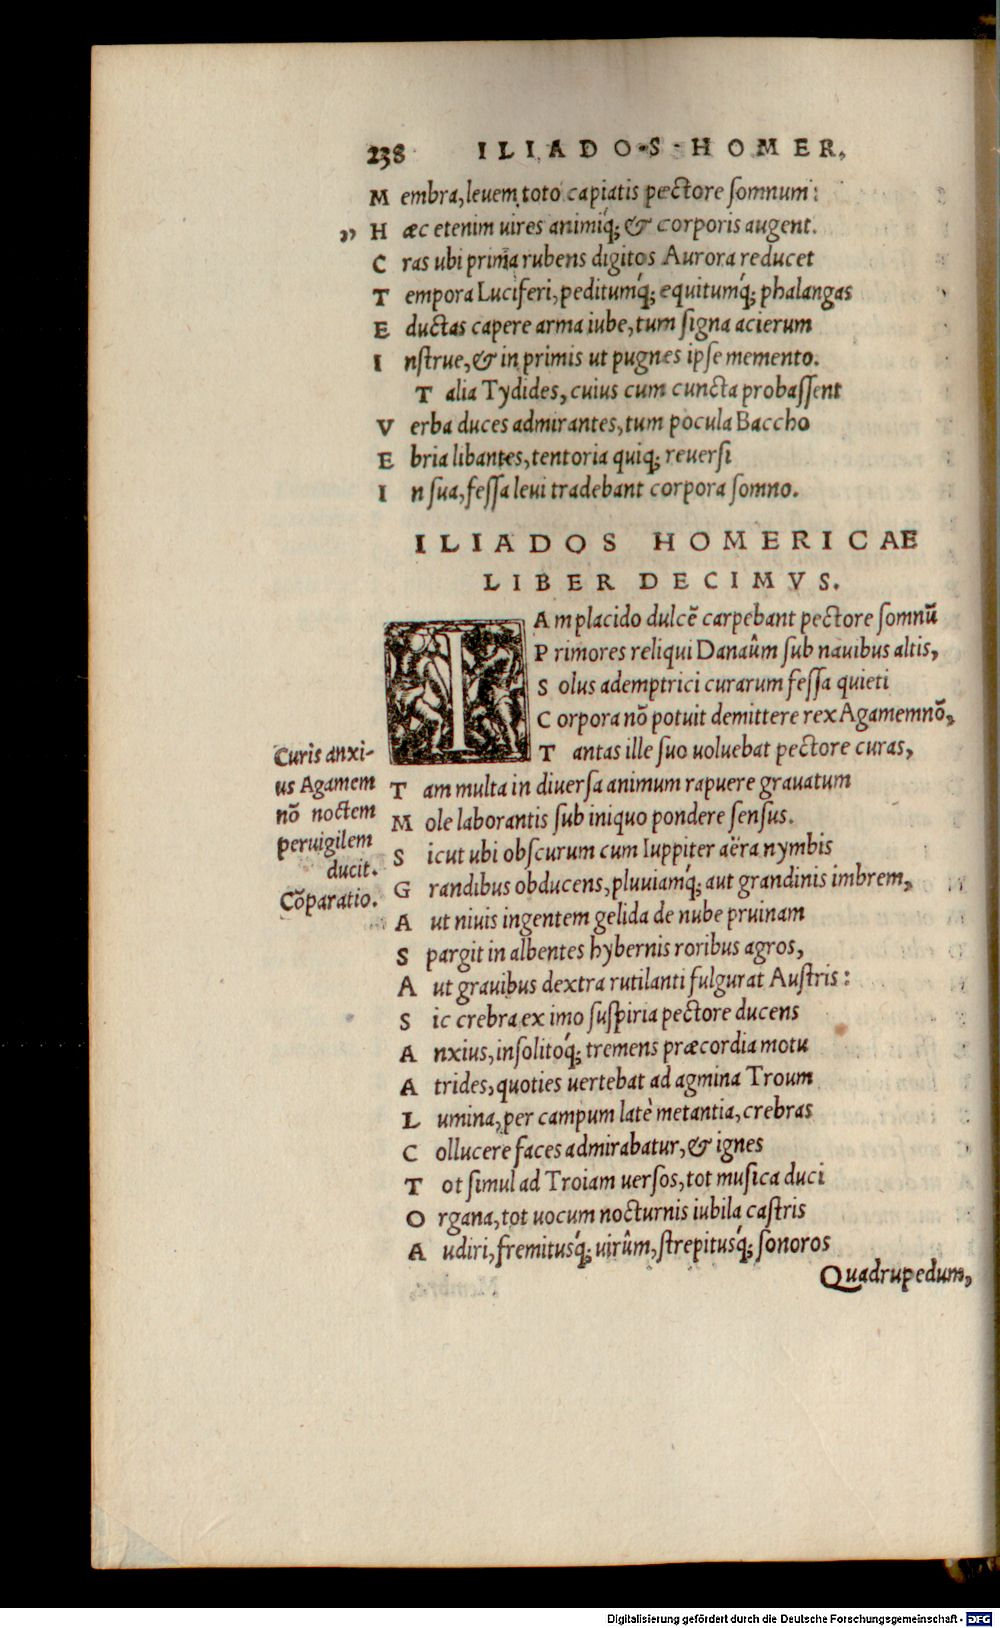 238 ILIADOS HOMER.
Membra, leuem toto capiatis pectore somnum:
„ Hæc etenim uires animiq́; & corporis augent.
Cras ubi prima rubens digitos Aurora reducet
Tempora Luciferi, peditumq́; equitumq́; phalangas
Eductas capere arma iube, tum signa acierum
Instrue, & in primis ut pugnes ipse memento.
Talia Tydides, cuius cum cuncta probassent
Verba duces admirantes, tum pocula Baccho
Ebria libantes, tentoria quiq; reuersi
In sua, fessa leui tradebant corpora somno.
ILIADOS HOMERICAE
LIBER DECIMVS.
IAm placido dulcē carpebant pectore somnū
Primores reliqui Danaûm sub nauibus altis,
Solus ademptrici curarum fessa quieti
Corpora nō potuit demittere rex Agamemnō,
Tantas ille suo uoluebat pectore curas,
Curis anxi-
us Agamem
nō noctem
peruigilem
ducit.
Cōparatio.
Tam multa in diuersa animum rapuere grauatum
Mole laborantis sub iniquo pondere sensus.
Sicut ubi obscurum cum Iuppiter aëra nymbis
Grandibus obducens, pluuiamq́; aut grandinis imbrem,
Aut niuis ingentem gelida de nube pruinam
Spargit in albentes hybernis roribus agros,
Aut grauibus dextra rutilanti fulgurat Austris:
Sic crebra ex imo suspiria pectore ducens
Anxius, insolitoq́; tremens præcordia motu
Atrides, quoties uertebat ad agmina Troum
Lumina, per campum latè metantia, crebras
Collucere faces admirabatur, & ignes
Tot simul ad Troiam uersos, tot musica duci
Organa, tot uocum nocturnis iubila castris
Audiri, fremitusq́; uirûm, strepitusq́; sonoros
Quadrupedum,
Digitalisierung gefördert durch die Deutsche Forschungsgemeinschaft - DFG